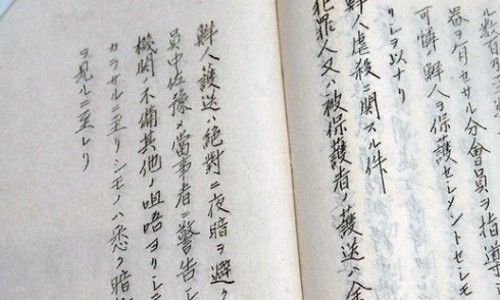 ル数
器ヲ有セサル分會員ヲ指導シ
可憐鮮人ヲ保護セシメントセシモ
リシヲ以ナリ
鮮人虐殺ニ関スル件
犯罪人又ハ被保護者ノ護送ハ全
鮮人護送ハ絶對ニ夜暗ヲ避ク
員中佐掾メ當事者ニ警告シ
機関ノ不備其他ノ咀唔ヨリシテ
カラサルニ至リシモノハ悉ク暗
ヲ見ルニ至レリ